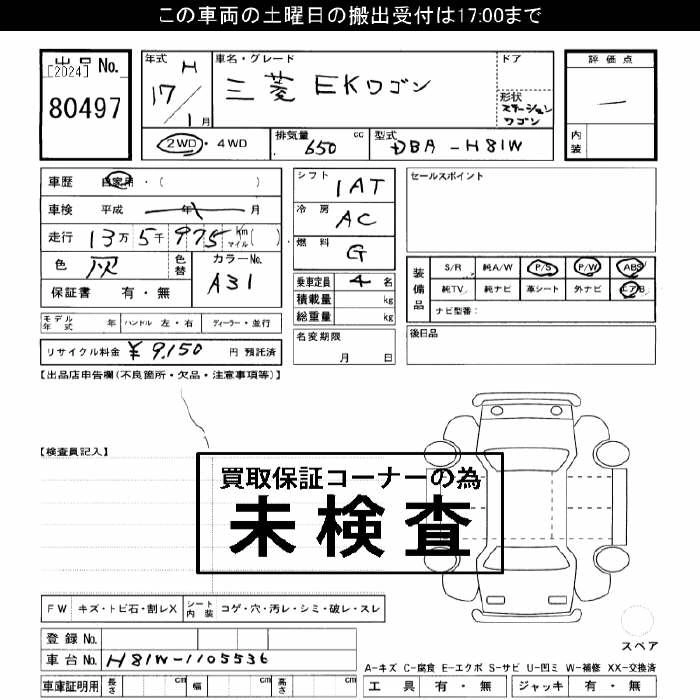 この車両の土曜日の搬出受付は17:00まで
出品 No.
[2024]
80497
年式 H
17 / 1 月
車名・グレード
三菱 EKワゴン
ドア
形状 ステーションワゴン
評価点
—
内装
2WD・4WD
排気量 650 cc
型式 DBA-H81W
車歴 自家用・( )
車検 平成 年 月
走行 13万 5千 975 km マイル ( )
色 灰
色替
カラーNo. A31
保証書 有・無
モデル年式 年
ハンドル 左・右
ディーラー・並行
リサイクル料金 ¥9,150 円 預託済
シフト 1AT
冷房 AC
燃料 G
乗車定員 4 名
積載量 kg
総重量 kg
名変期限
月 日
セールスポイント
装備品
S/R 純A/W P/S P/W ABS
純TV 純ナビ 革シート 外ナビ エアB
ナビ型番:
後日品
【出品店申告欄(不良箇所・欠品・注意事項等)】
【検査員記入】
買取保証コーナーの為
未検査
FW キズ・トビ石・割レX
シート内装 コゲ・穴・汚レ・シミ・破レ・スレ
登録 No.
車台 No. H81W-1105536
車庫証明用 長さ cm 幅 cm 高さ cm
スペア
A-キズ C-腐食 E-エクボ S-サビ U-凹ミ W-補修 XX-交換済
工具 有・無
ジャッキ 有・無